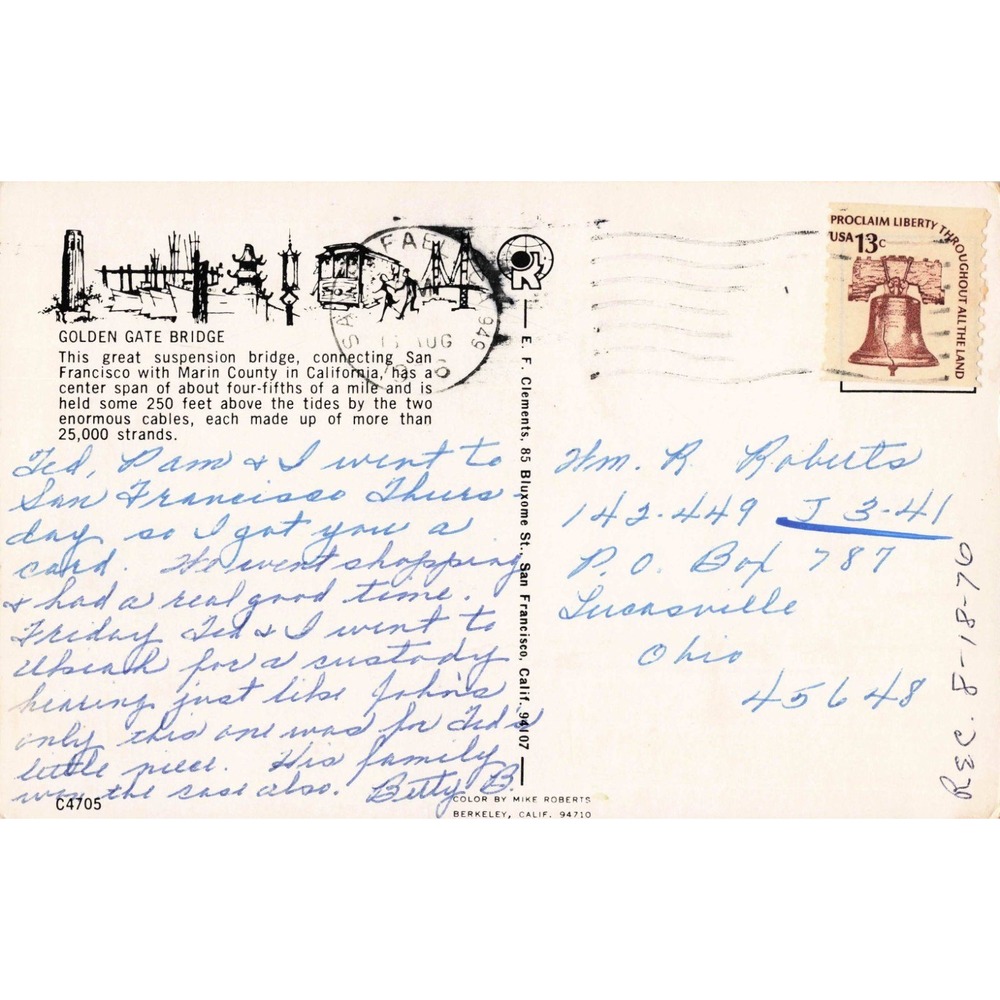 GOLDEN GATE BRIDGE
This great suspension bridge, connecting San
Francisco with Marin County in California, has a
center span of about four-fifths of a mile and is
held some 250 feet above the tides by the two
enormous cables, each made up of more than
25,000 strands.
Ted, Pam & I went to
San Francisco Thurs-
day so I got you a
card. We went shopping
& had a real good time.
Friday Ted & I went to
Ukiah for a custody
hearing just like John's
only this one was for Ted's
little niece. His family
won the case also. Betty B.
C4705
COLOR BY MIKE ROBERTS
BERKELEY, CALIF. 94710
E. F. Clements, 85 Bluxome St., San Francisco, Calif. 94107
SAN RAFAEL 949
AUG
PROCLAIM LIBERTY THROUGHOUT ALL THE LAND
USA 13c
Wm. R. Roberts
142-449 J 3-41
P.O. Box 787
Lucasville
Ohio
45648
REC. 8-18-76